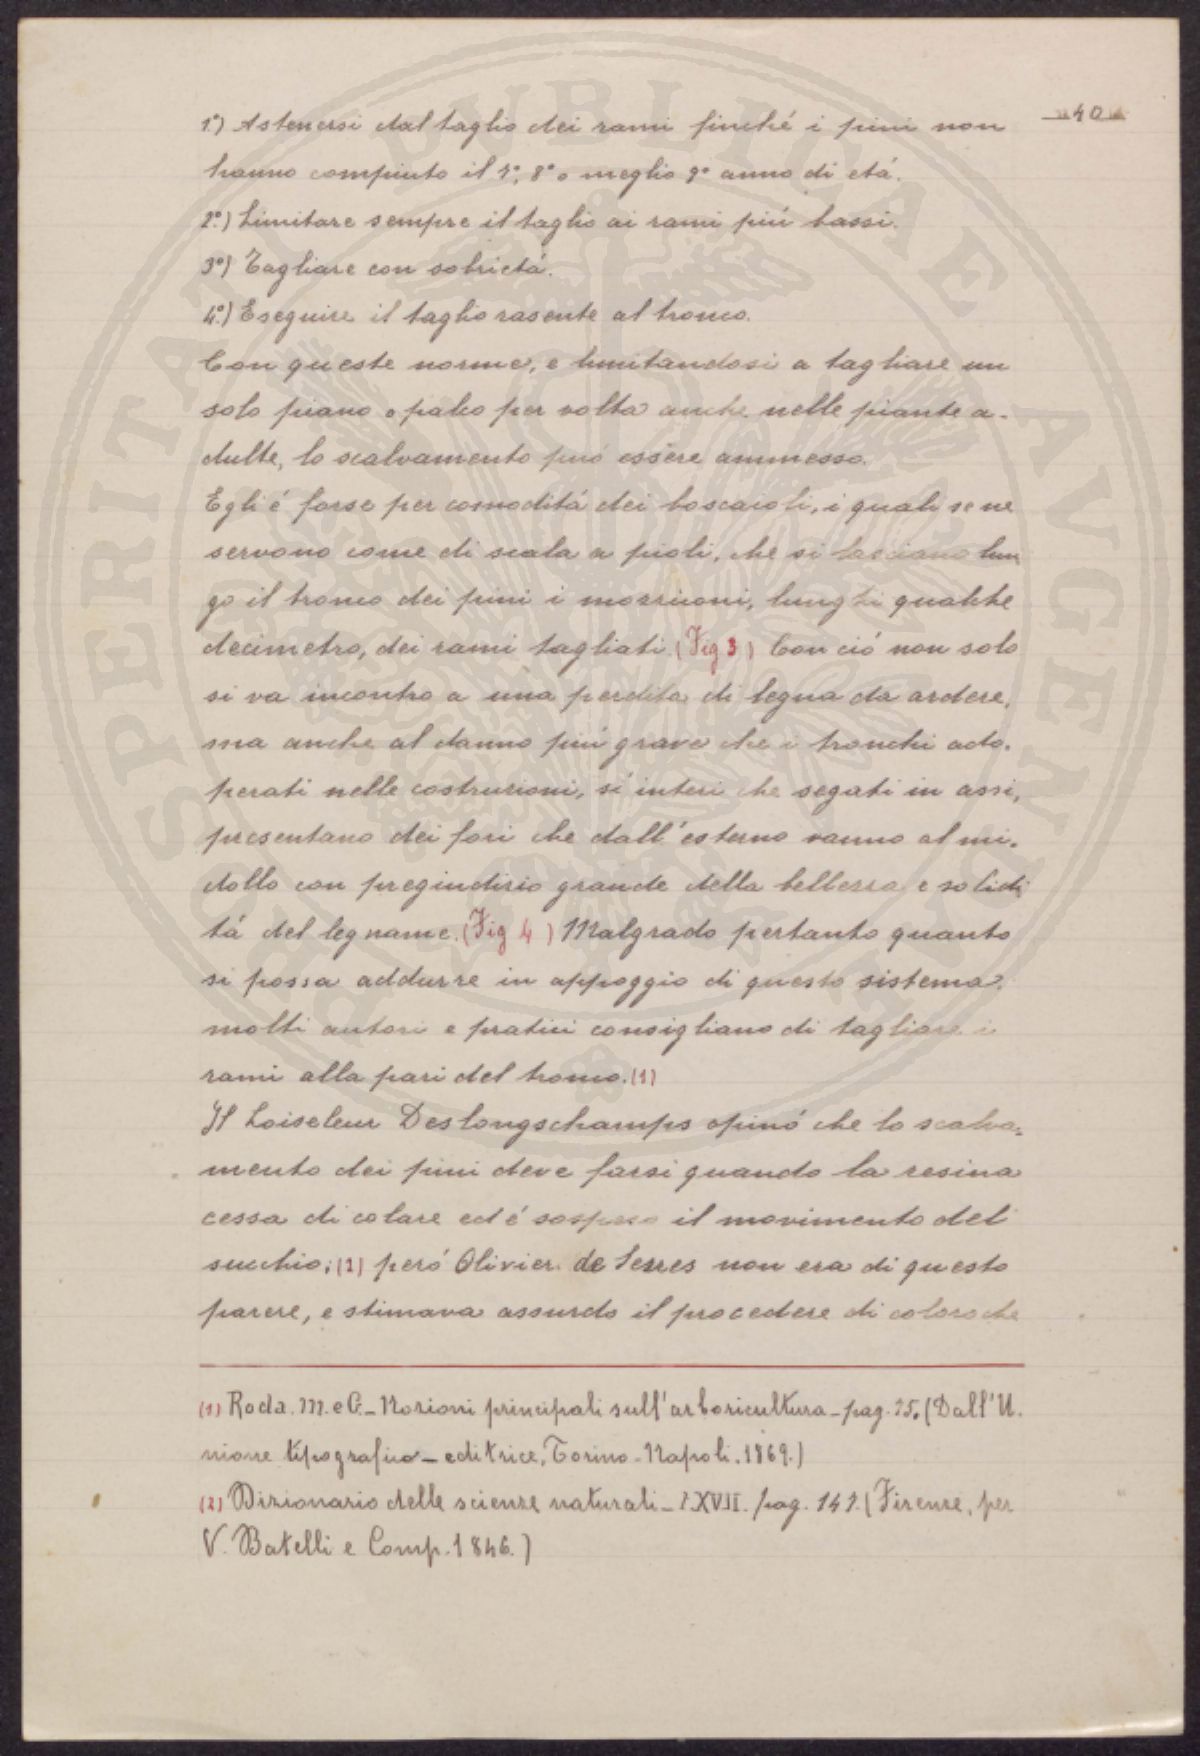 40
1°) Astenersi dal taglio dei rami finché i pini non
hanno compiuto il 7°, 8° o meglio 9° anno di etá.
2°) Limitare sempre il taglio ai rami piú bassi.
3°) Tagliare con sobrietá.
4°) Eseguire il taglio rasente al tronco.
Con queste norme, e limitandosi a tagliare un
solo piano o palco per volta anche nelle piante a-
dulte, lo scalvamento puó essere ammesso.
Egli é forse per comoditá dei boscaioli, i quali se ne
servono come di scala a pioli, che si lasciano lun
go il tronco dei pini i mozziconi, lunghi qualche
decimetro, dei rami tagliati (Fig 3) Con ció non solo
si va incontro a una perdita di legna da ardere,
ma anche al danno piú grave che i tronchi ado-
perati nelle costruzioni, sí interi che segati in assi,
presentano dei fori che dall'esterno vanno al mi-
dollo con pregiudizio grande della bellezza e solidi
tá del legname. (Fig 4) Malgrado pertanto quanto
si possa addurre in appoggio di questo sistema,
molti autori e pratici consigliano di tagliare i
rami alla pari del tronco. (1)
Il Loiseleur Deslongschamps opinó che lo scalva-
mento dei pini deve farsi quando la resina
cessa di colare ed é sospeso il movimento del
succhio; (2) peró Olivier de Serres non era di questo
parere, e stimava assurdo il procedere di coloro che
(1) Roda. M. e G. - Nozioni principali sull'arboricultura - pag. 25. (Dall'U-
nione tipografico - editrice, Torino - Napoli. 1869.)
(2) Dizionario delle scienze naturali - T. XVII. pag. 147. (Firenze, per
V. Batelli e Comp. 1846.)
SPERITAT PUBLICAE AVGENDAE